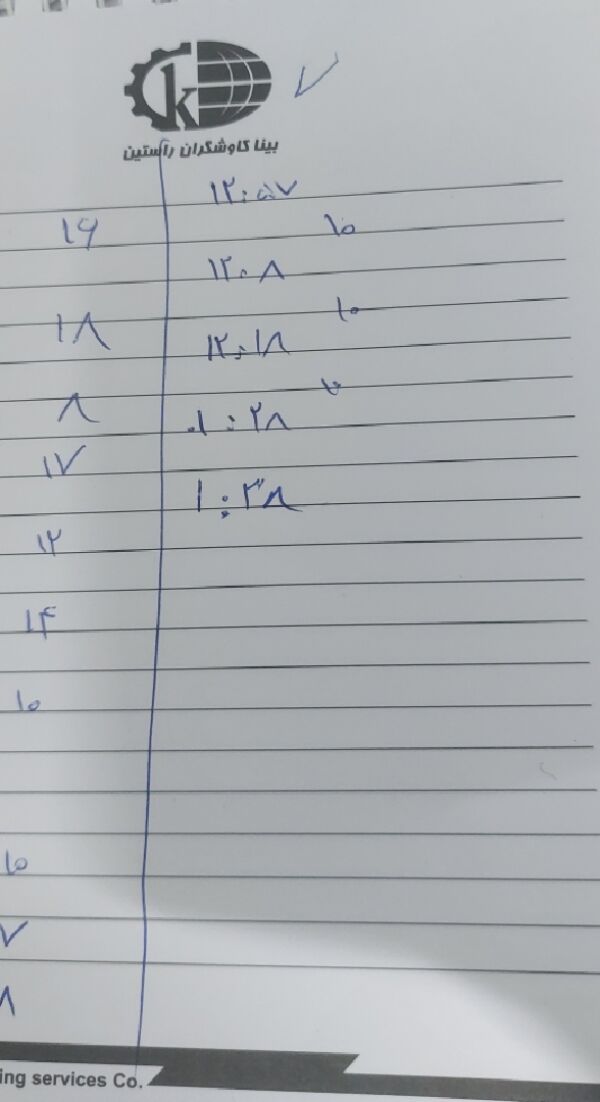 k
بینا کاوشگران راستین
۷
۱۲:۵۷
۱۶
۱۰
۱۲:۰۸
۱۰
۱۸
۱۲:۱۸
۸
۰۱:۲۸
۱۷
۱:۳۸
۱۲
۱۴
۱۰
۱۰
۷
۸
ing services Co.